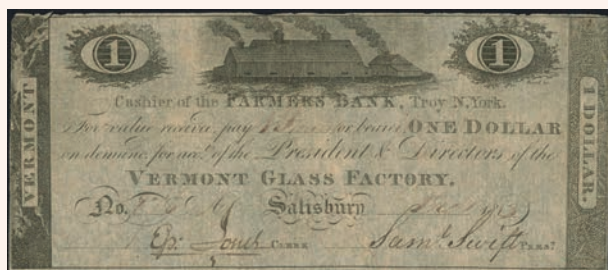 1
1
Cashier of the FARMERS BANK, Troy N.York.
For value receiv'd pay or bearer, ONE DOLLAR
on demand for acct. of the President & Directors of the
VERMONT GLASS FACTORY.
No. Salisbury
Ep. Jones CLERK Saml. Swift PREST
VERMONT
1 DOLLAR.